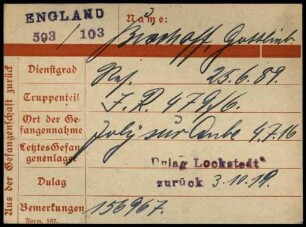 ENGLAND
593 / 103
Name:
Bischoff, Gottlieb
Aus der Gefangenschaft zurück
Dienstgrad
25.6.89.
Truppenteil
I.R. 479/6.
Ort der Ge-
fangennahme
4.7.16
Letztes Gefan-
genenlager
Dulag Lockstedt
Dulag
zurück 3.10.19.
Bemerkungen
156967.
Form. 187.